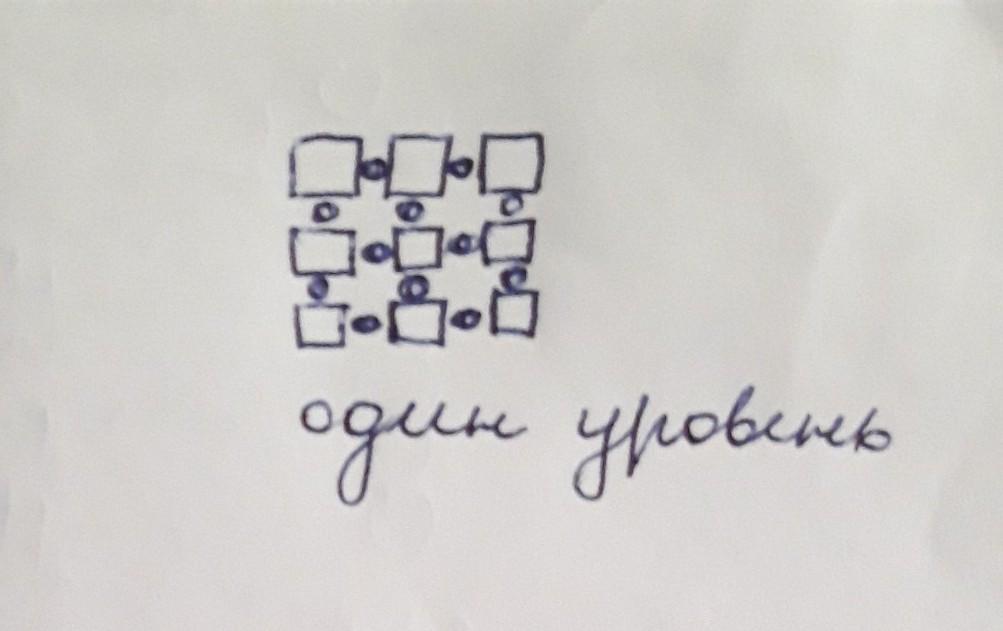 один уровень